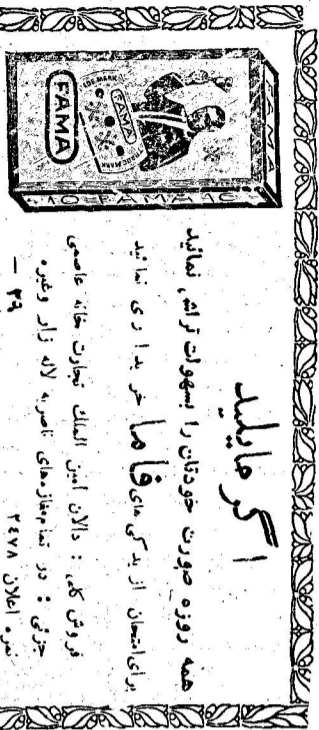 اگر مایلید
همه روزه صورت خودتان را بسهولت تراش نمائید
برای امتحان از یدکی های فاما خریداری نمائید
فروش کلی : دالان امین الملک تجارت خانه عاصمی
جزئی : در تمام مغازه های ناصریه لاله زار وغیره
نمره اعلان ۲۴۷۸
— ۳۹
FAMA
FAMA
TRADE MARK
FAMA
10 FAMA 10